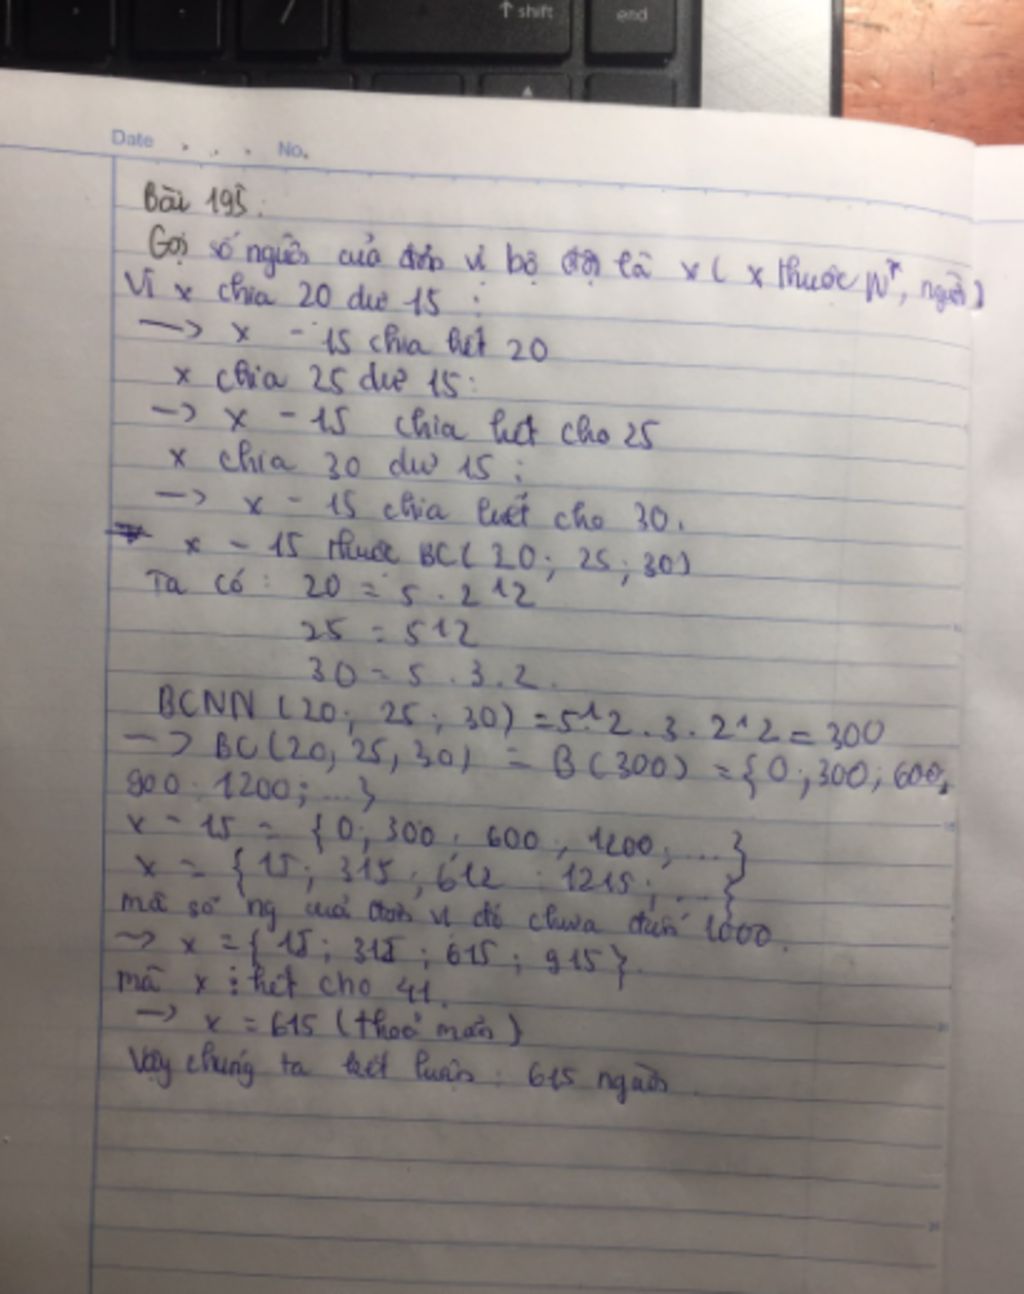 ↑ shift
end
Date . . . No.
Bài 195:
Gọi số người của đơn vị bộ đội là x ( x thuộc N*, người)
Vì x chia 20 dư 15 :
—> x - 15 chia hết 20
x chia 25 dư 15:
—> x - 15 chia hết cho 25
x chia 30 dư 15 :
—> x - 15 chia hết cho 30.
x - 15 thuộc BC( 20 ; 25 ; 30)
Ta có : 20 = 5 . 2^2
25 = 5^2
30 = 5 . 3 . 2.
BCNN (20 ; 25 ; 30) = 5^2 . 3 . 2^2 = 300
—> BC(20, 25, 30) = B(300) = {0 ; 300 ; 600,
900 ; 1200 ; ...}
x - 15 = {0 ; 300 ; 600 , 1200 ; ...}
x = {15 ; 315 ; 612 ; 1215 ; ...}
mà số ng của đơn vị đó chưa đến 1000.
—> x = {15 ; 315 ; 615 ; 915}.
mà x : hết cho 41.
—> x = 615 (thoả mãn)
Vậy chúng ta kết luận : 615 người